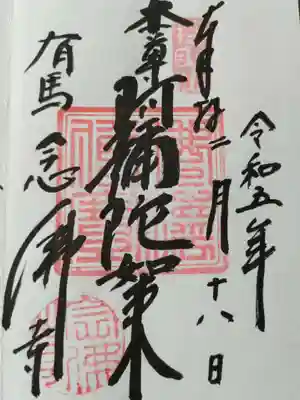 令和五年
奉拝二月
十八日
本尊
阿彌陀如来
有馬
念佛寺